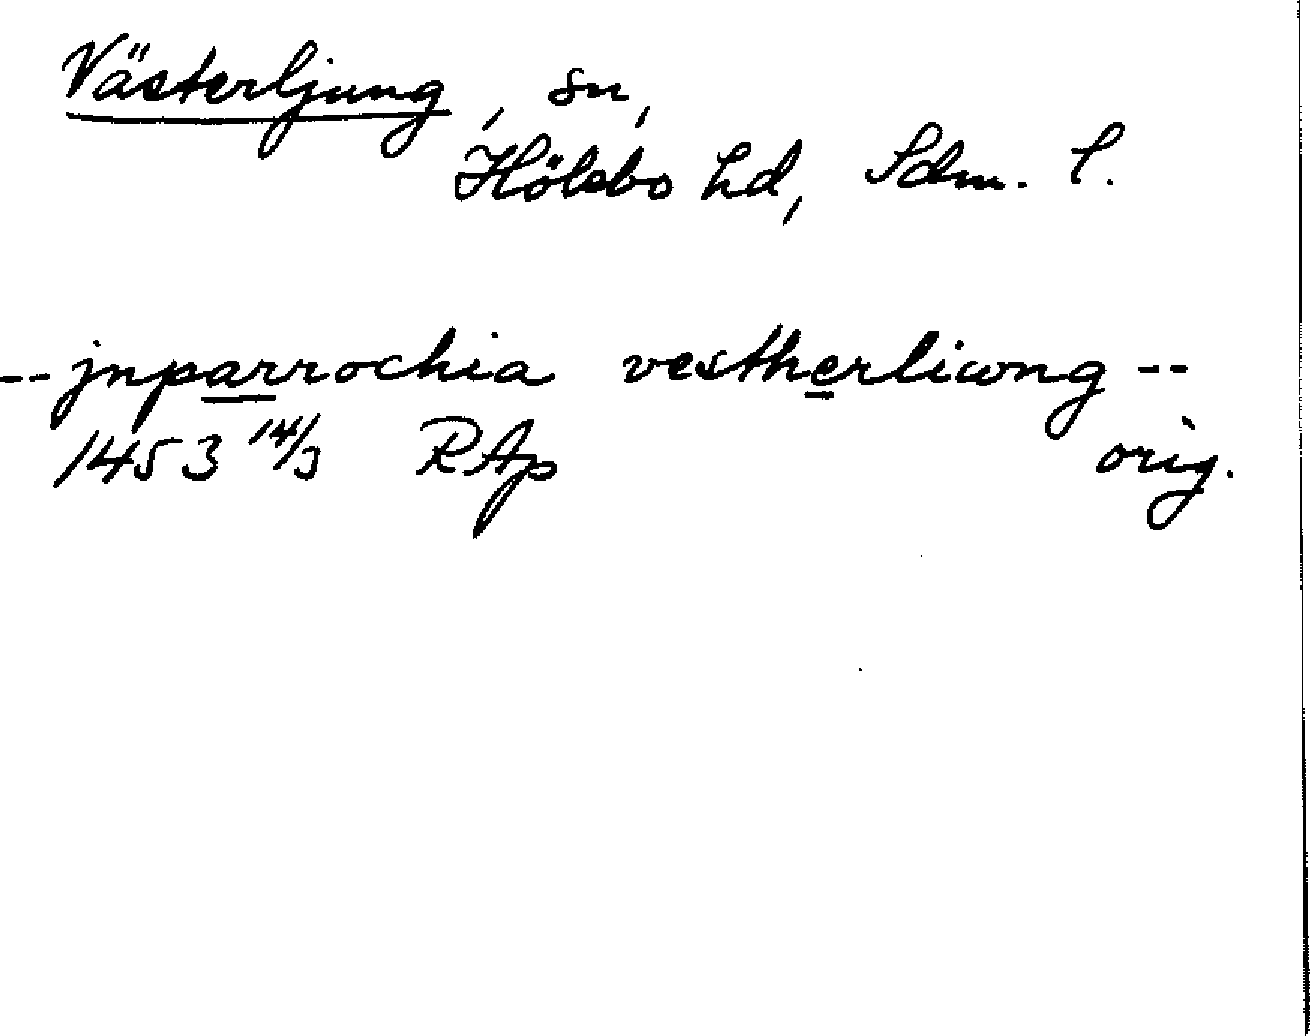 Västerljung, sn,
Hölebo hd, Sdm. l.
-- jnparrochia vestherliwng --
1453 14/3 RAp orig.